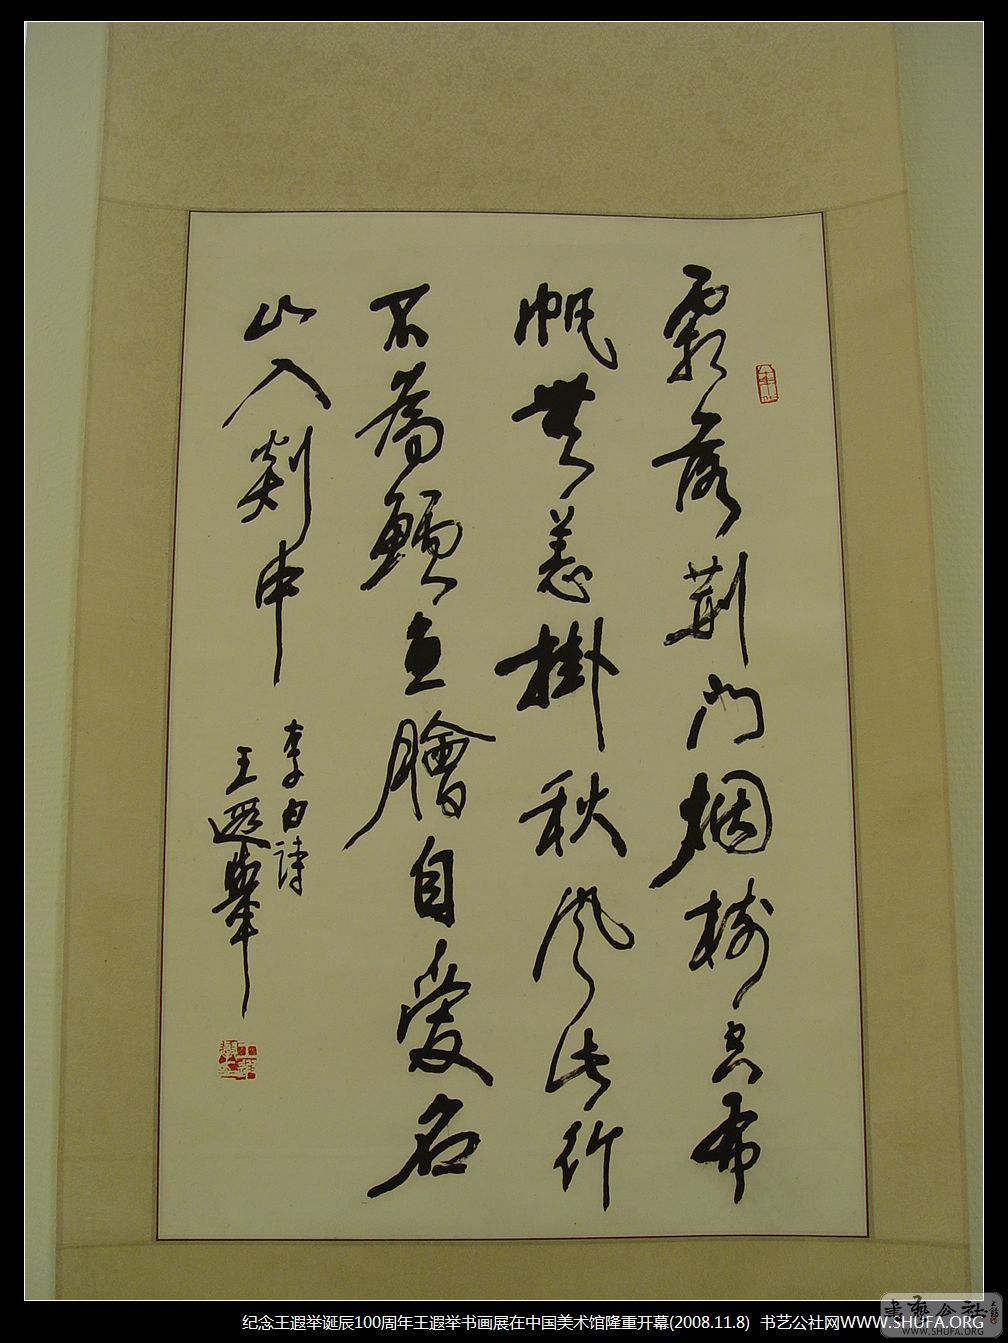 霜落荆門烟樹空布
帆無恙掛秋風此行
不為鱸魚膾自愛名
山入剡中
李白詩
王遐舉
纪念王遐举诞辰100周年王遐举书画展在中国美术馆隆重开幕(2008.11.8) 书艺公社网WWW.SHUFA.ORG
書藝公社
WWW.SHUFA.ORG